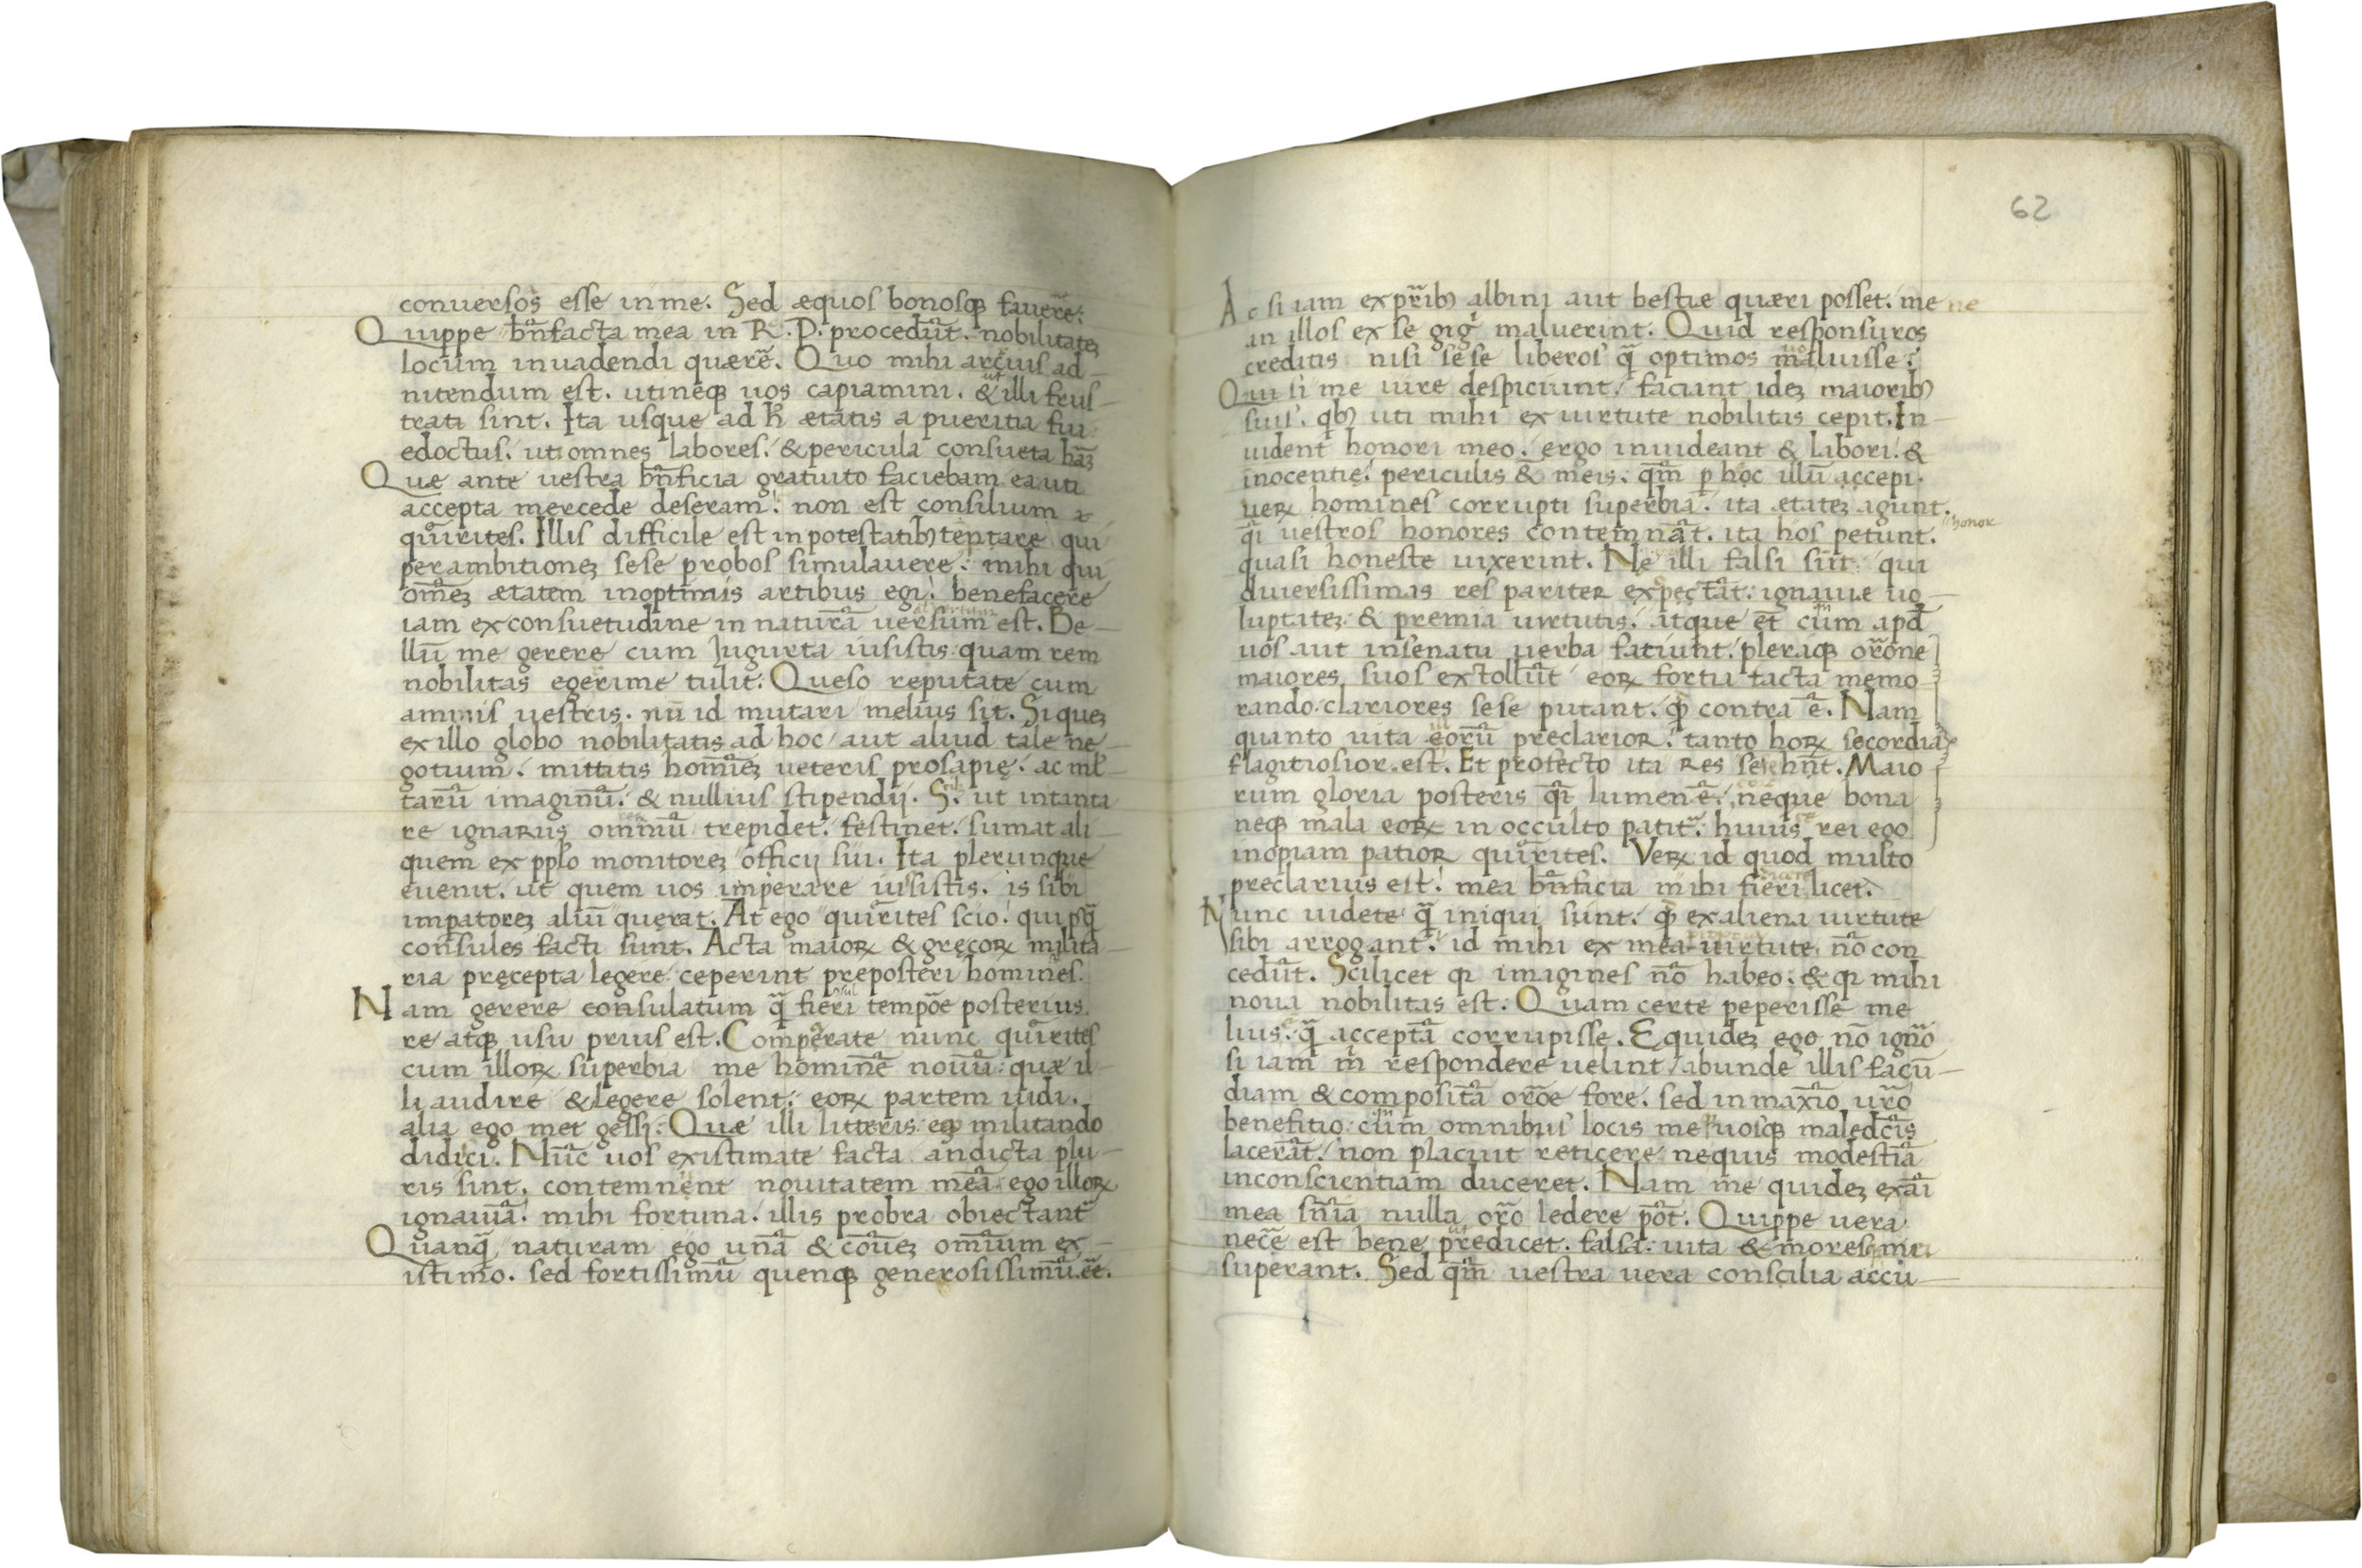 conuersos esse in me. Sed æquos bonosqꝫ fauere᷉:
Quippe bn̄facta mea in R.P. procedūt. nobilitatēꝫ
locum inuadendi quærē. Quo mihi arcuis ad-
nitendum est. ut neqꝫ uos capiamini. & illi frus-
trati sint. Ita usque ad h̄ ætatis a pueritia fui
edoctus. ut omnes labores. & pericula consueta hāꝫ
Quæ ante uestra bn̄ficia gratuito faciebam. ea uti
accepta mercede deseram. non est consilium
quirites. Illis difficile est in potestatibꝰ temptare qui
per ambitioneꝫ sese probos simulauere: mihi qui
om̄eꝫ ætatem in optimis artibus egi. benefacere
iam ex consuetudine in naturā uersum est. Be-
llū me gerere cum Iugurta iusistis. quam rem
nobilitas egerime tulit. Queso reputate cum
animis uestris. nū id mutari melius sit. Si queꝫ
ex illo globo nobilitatis ad hoc aut aliud tale ne-
gotium. mittatis homīeꝫ ueteris prosapię. ac ml̄-
tarū imaginū. & nullius stipendij. S. ut in tanta
re ignarus omniū trepidet. festinet. sumat ali-
quem ex pplo monitoreꝫ officij sui. Ita plerunque
euenit. ut quem uos imperare iusistis. is sibi
impatoreꝫ aliū querat. At ego quirites scio. qui psq̄
consules facti sunt. Acta maioꝝ & gręcoꝝ milita-
ria pręcepta legere ceperint preposteri homines.
Nam gerere consulatum q̄ fieri tempōe posterius.
re atqꝫ usu prius est. Comperate nunc quirites
cum illoꝝ superbia me hominē nouū. quæ il-
li audire & legere solent. eoꝝ partem uidi.
alia ego met gessi. Quæ illi litteris. eqꝫ militando
didici. Nūc uos existimate facta an dicta plu-
ris sint. contemnent nouitatem meā. ego illoꝝ
ignauiā. mihi fortuna. illis probra obiectant̄
Quanq̄ naturam ego unā & cōueꝫ omīum ex-
istimo. sed fortissimū quenqꝫ generosissimū. eē.
62
Ac si iam ex pr̄ibꝰ albini aut bestie quæri posset. me ne
an illos ex se giḡ maluerint. Quid responsuros
creditis nisi sese liberos q̄ optimos maluisse.
Qui si me iure despiciunt. faciunt ideꝫ maioribꝰ
suis. qbꝰ uti mihi ex uirtute nobilitas cepit. In-
uident honori meo. ergo inuideant & labori. &
inocentię. periculis & meis. qm̄ p hoc illū accepi.
ueꝝ homines corrupti superbia. ita etateꝫ agunt.
qi uestros honores contemnāt. ita hos petunt.
honor
quasi honeste uixerint. Ne illi falsi sūt qui
diuersissimas res pariter expectāt. ignauie uo-
luptateꝫ & premia uirtutis. atque et̄ cum apd̄
uos aut in senatu uerba fatiunt. pleraqꝫ orōne
maiores suos extollūt eoꝝ fortu facta memo
rando. clariores sese putant. qđ contra ē. Nam
quanto uita eorū preclarior. tanto hoꝝ secordia
flagitiosior. est. Et profecto ita res sese hn̄t. Maio
rum gloria posteris qi lumen ē. neque bona
neqꝫ mala eoꝝ in occulto patit̄. huius rei ego
inopiam patior quirites. Veꝝ id quod multo
preclarius est. mea bn̄ficia mihi fieri licet.
Nunc uidete q̄ iniqui sunt. qđ ex aliena uirtute
sibi arrogant. id mihi ex mea uirtute nō con
cedūt. Scilicet qꝛ imagines nō habeo. & qꝛ mihi
noua nobilitas est. Quam certe peperisse me
lius. q̄ acceptā corrupisse. Equideꝫ ego nō ignō
si iam m̄ respondere uelint abunde illis facū-
diam & compositā orōe fore. sed in maxīo ur̄o
benefitio cum omnibus locis me uosqꝫ maledc̄is
lacerāt. non placuit reticere ne quis modestiā
in conscientiam duceret. Nam me quideꝫ ex āi
mea sn̄ia nulla orō ledere pōt. Quippe uera
necē est bene predicet. falsa. uita & mores mei
superant. Sed qm̄ uestra uera conscilia accu-